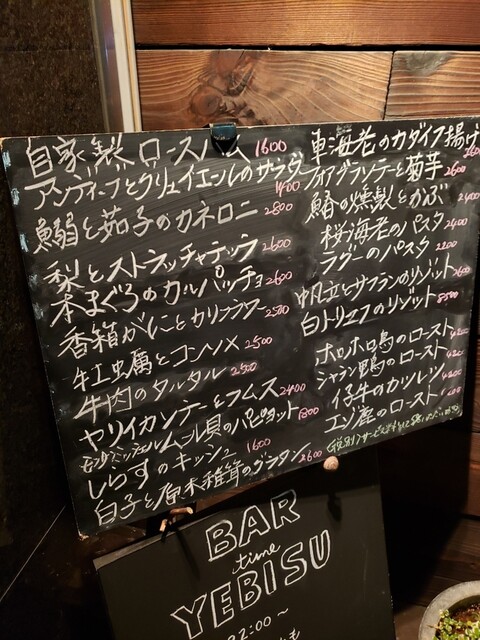 自家製ロースハム 1600
アンディーブとグリュイエールのサラダ 1400
鰯と茄子のカネロニ 2800
梨とストラッチャテッラ 2600
本まぐろのカルパッチョ 2600
香箱がにとカリフラワー
牡蛎とコンソメ 2500
牛肉のタルタル 2500
ヤリイカンテーとフムス 2400
モンサンミッシェルムール貝のパピヨット 1800
しらすのキッシュ 1600
白子と原木椎茸のグラタン 2600
車海老のカダイフ揚げ
フォアグランテーと菊芋 2600
鰆の燻製とかぶ 2400
桜海老のパスタ 2400
ラグーのパスタ 2200
帆立とサフランのリゾット 2600
白トリュフのリゾット
ホロホロ鳥のロースト
シャラン鴨のロースト
仔牛のカツレツ
エゾ鹿のロースト
BAR
time
YEBISU
22:00〜